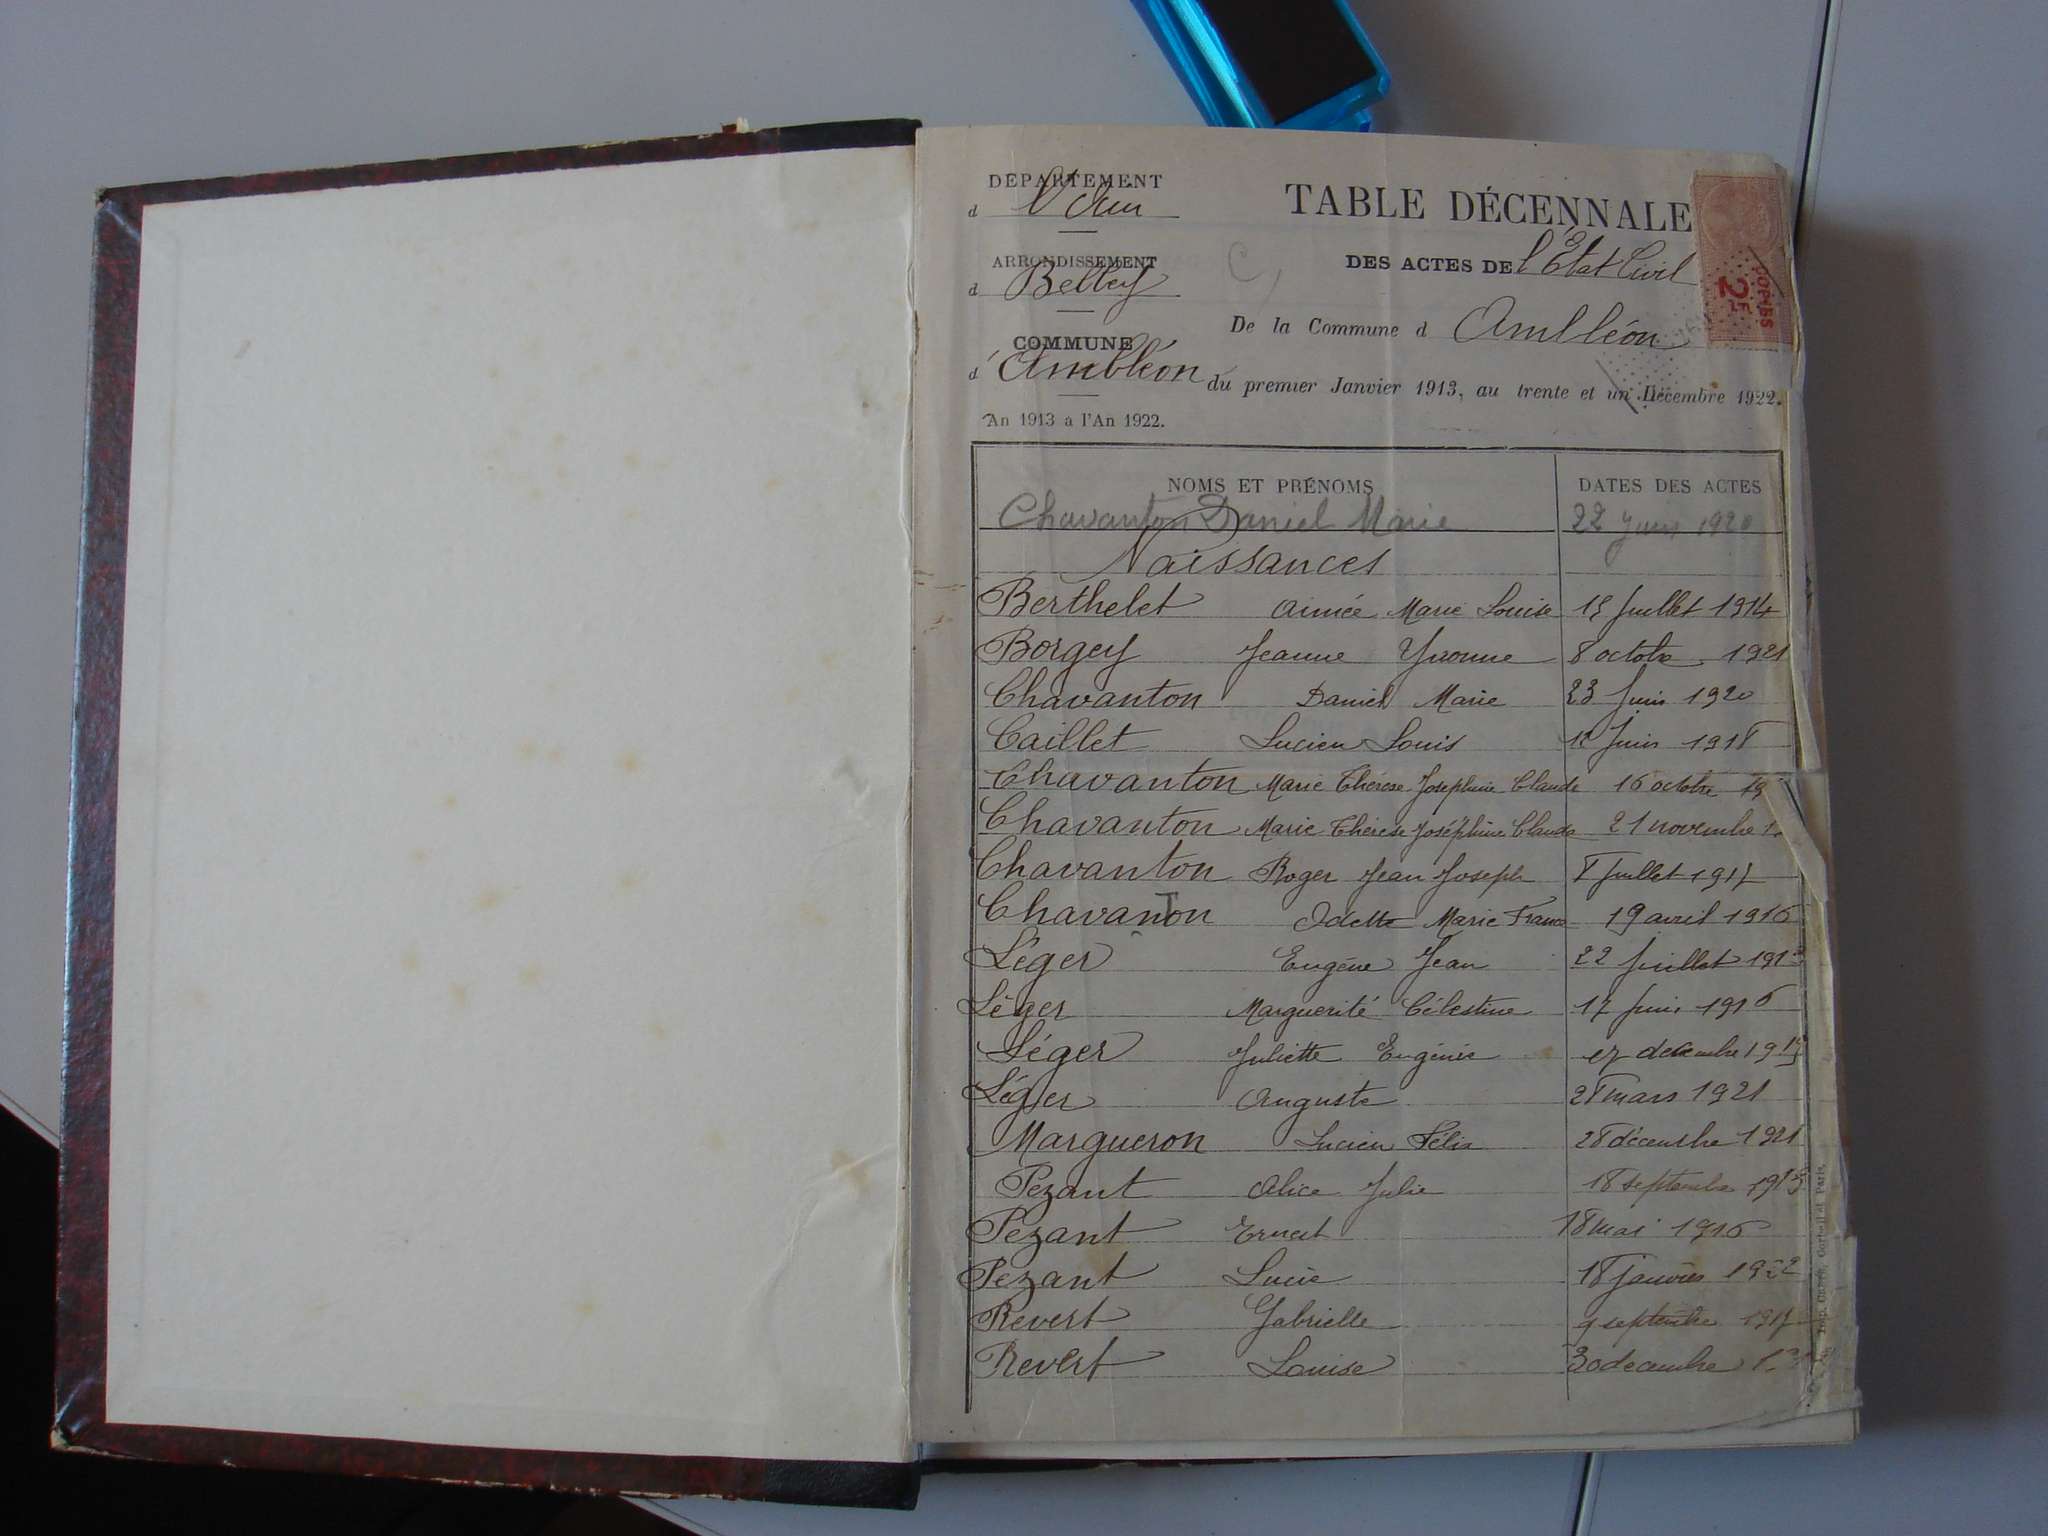 DÉPARTEMENT
d l'Ain
ARRONDISSEMENT
d Belley
COMMUNE
d' Ambléon
An 1913 à l'An 1922.
TABLE DÉCENNALE
DES ACTES DE l'État Civil
De la Commune d Ambléon
du premier Janvier 1913, au trente et un Décembre 1922.
2F
NOMS ET PRÉNOMS DATES DES ACTES
Chavanton Daniel Marie 22 juin 1920
Naissances
Berthelet Aimée Marie Louise juillet 1914
Borgey Jeanne Yvonne 8 octobre 1921
Chavanton Daniel Marie 23 juin 1920
Caillet Lucien Louis juin 1918
Chavanton Marie Thérèse Joséphine Claude 16 octobre
Chavanton Marie Thérèse Joséphine Claude 21 novembre
Chavanton Roger Jean Joseph 8 juillet
Chavanton Odette Marie France 19 avril 1916
Léger Eugène Jean 22 juillet
Léger Marguerite Célestine 17 juin 1916
Léger Juliette Eugénie décembre
Léger Auguste 28 mars 1921
Margueron Lucien Félix 28 décembre 1921
Pezant Alice Julie 18 septembre
Pezant Ernest 18 mai 1916
Pezant Lucie 18 janvier 1922
Revert Gabrielle 9 septembre
Revert Louise 30 decembre